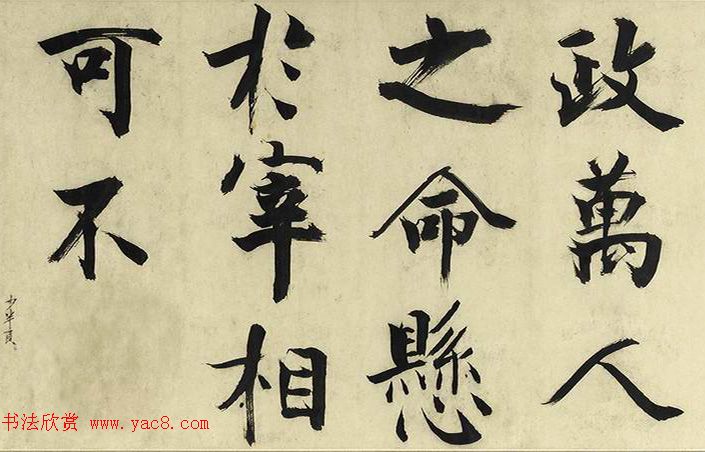 政萬人
之命懸
於宰相
可不
书法欣赏 www.yac8.com